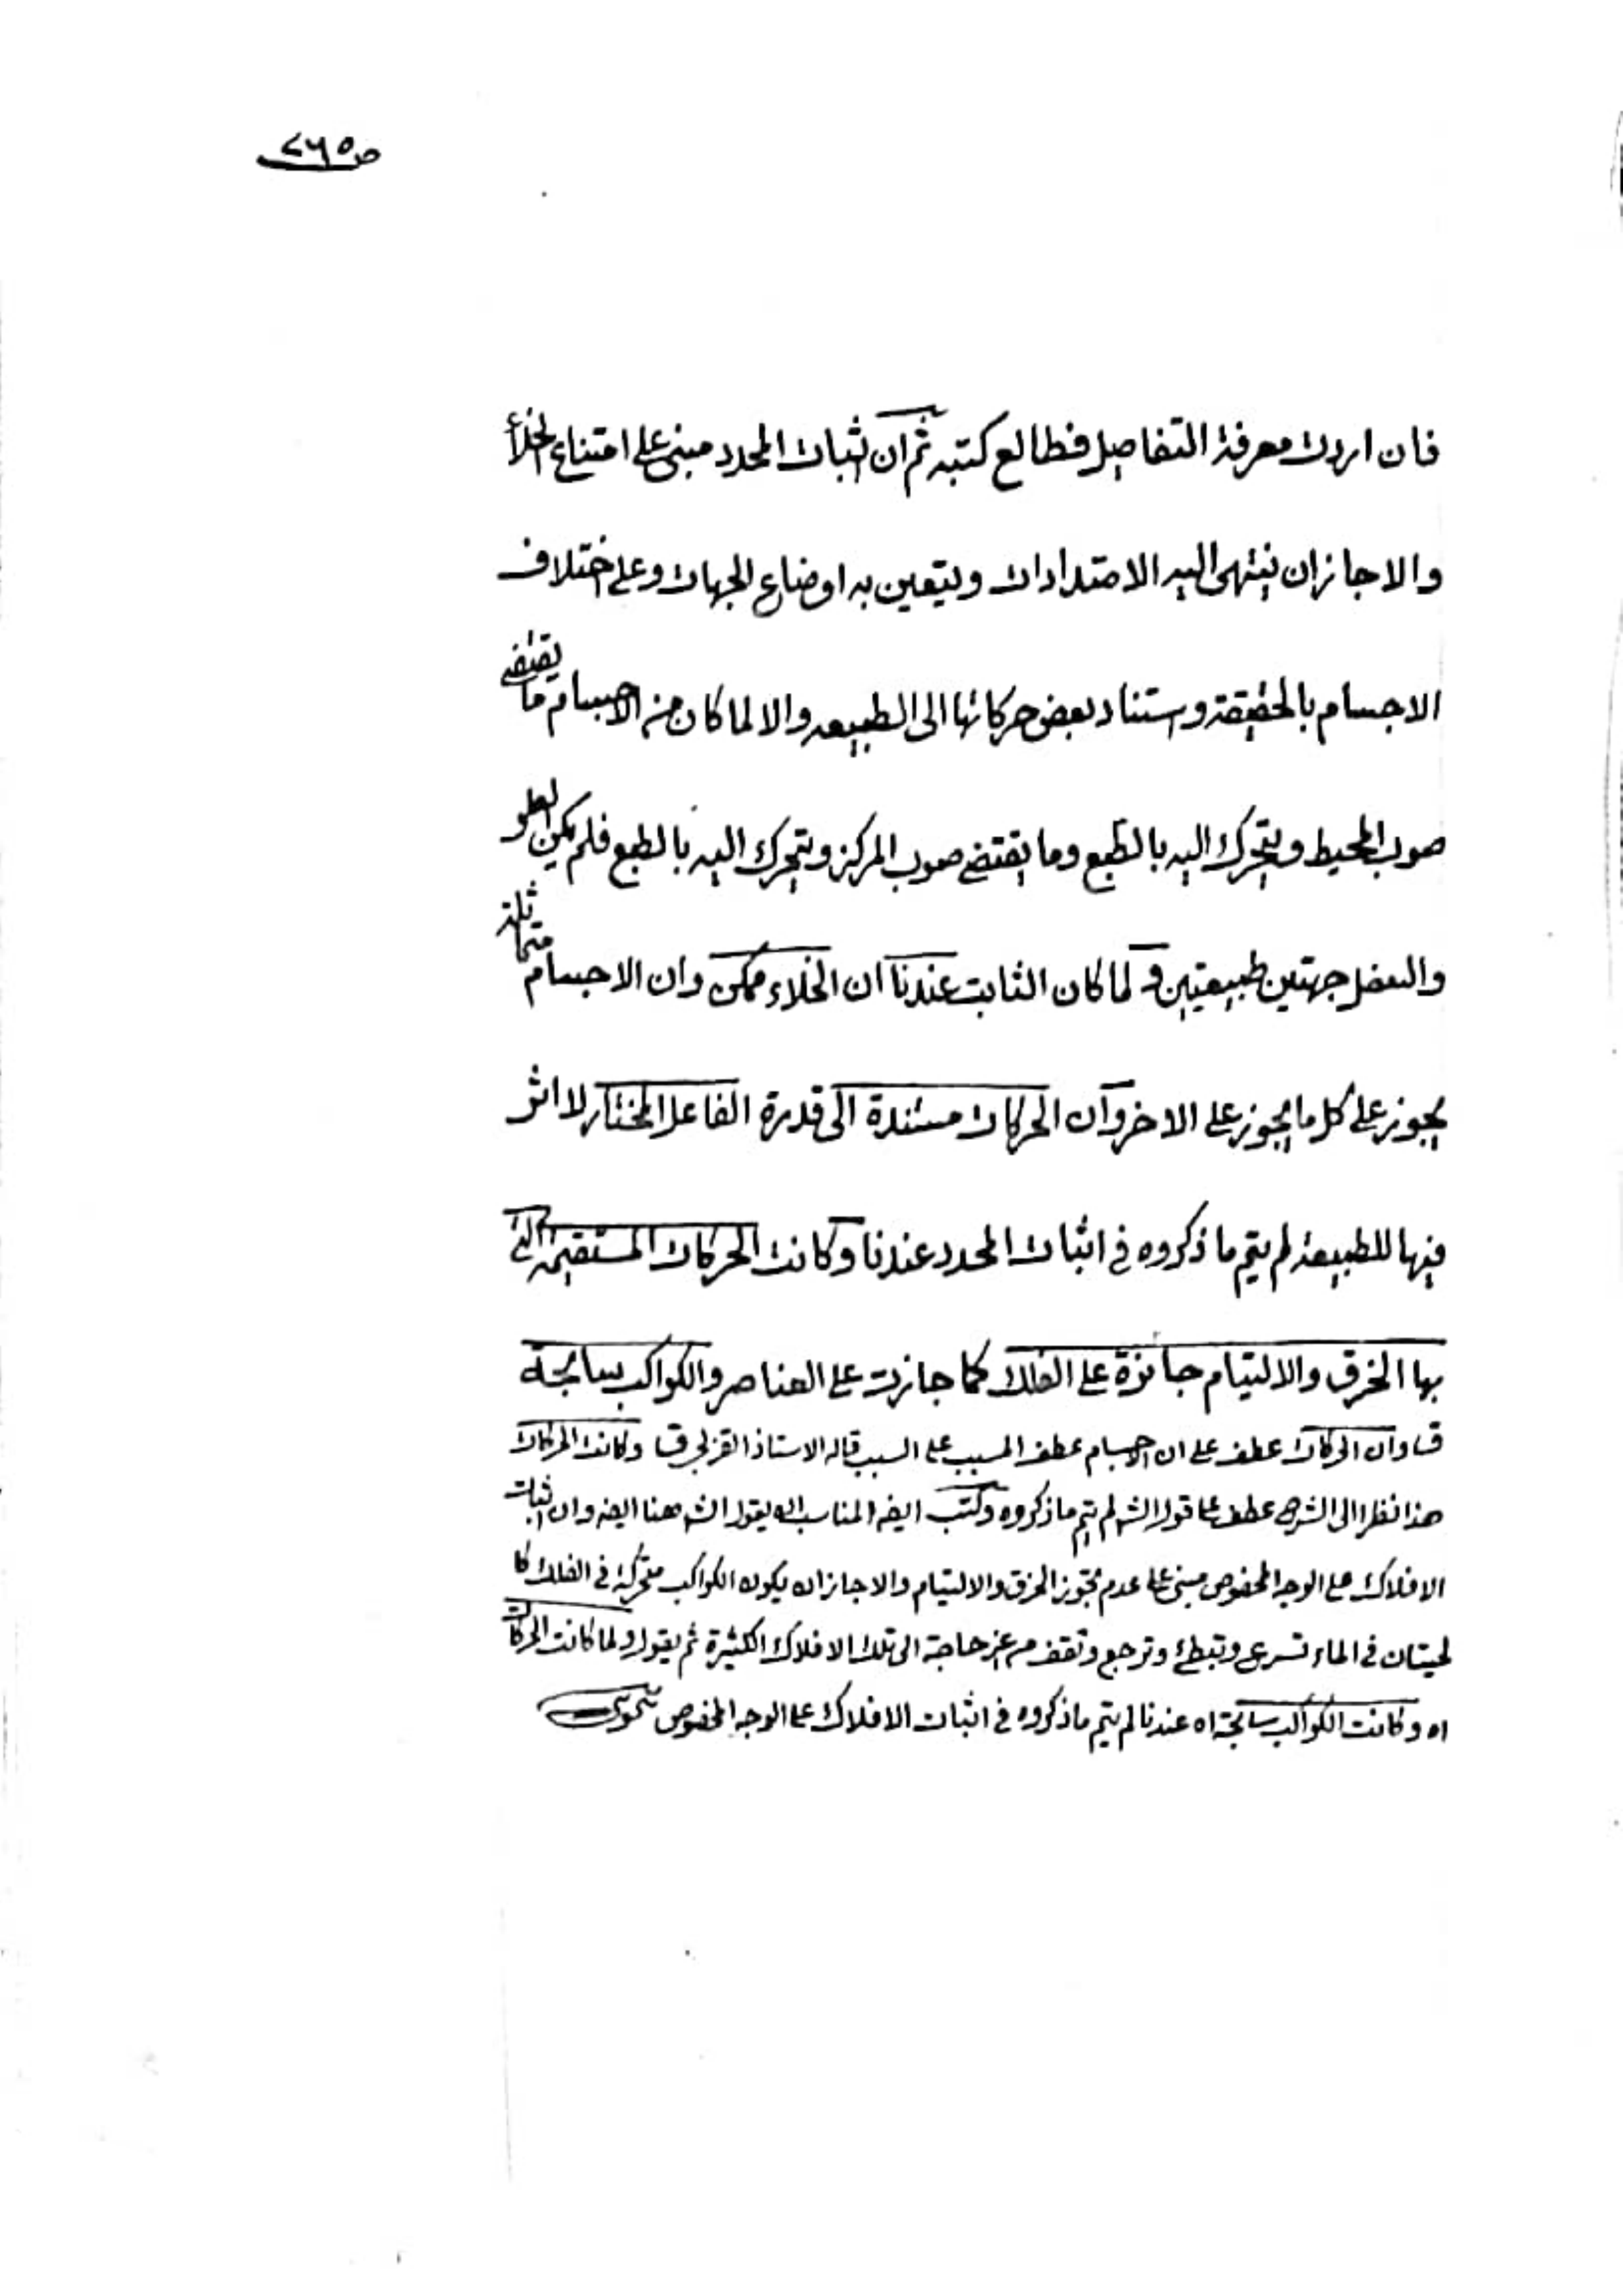 ص ٢٦٥
فان اردت معرفة التفاصيل فطالع كتبه ثم ان اثبات المحدد مبنى على امتناع الخلأ
والا جاز ان ينتهى اليه الامتدادات ويتعين به اوضاع الجهات وعلى اختلاف
الاجسام بالحقيقة واستناد بعض حركاتها الى الطبيعه والا لما كان من الاجسام ما يقتضى
صوب المحيط ويتحرك اليه بالطبع وما يقتضى صوب المركز ويتحرك اليه بالطبع فلم يكن العلو
والسفل جهتين طبيعيتين ولما كان الثابت عندنا ان الخلاء ممكن وان الاجسام متماثلة
يجوز على كل ما يجوز على الاخر وان الحركات مستندة الى قدرة الفاعل المختار لا اثر
فيها للطبيعة لم يتم ما ذكروه فى اثبات المحدد عندنا وكانت الحركات المستقيمة التى
بها الخرق والالتيام جائزة على الفلك كما جازت على العناصر والكواكب سابحة
وان الحركات عطف على ان الاجسام عطف المسبب على السبب قاله الاستاذ القزلجى وكانت الحركات
هذا نظرا الى الشرح عطف على قول الش لم يتم ما ذكروه وكتب ايضه المناسب ان يقول الش هنا ايضه وان اثبات
الافلاك على الوجه المخصوص مبنى على عدم تجويز الخرق والالتيام والا جاز ان يكون الكواكب متحركة فى الفلك كا
لحيتان فى الماء تسرع وتبطئ وترجع وتقف من غير حاجة الى تلك الافلاك الكثيرة ثم يقول ولما كانت الحركات
اه وكانت الكواكب سابحة اه عندنا لم يتم ما ذكروه فى اثبات الافلاك على الوجه المخصوص